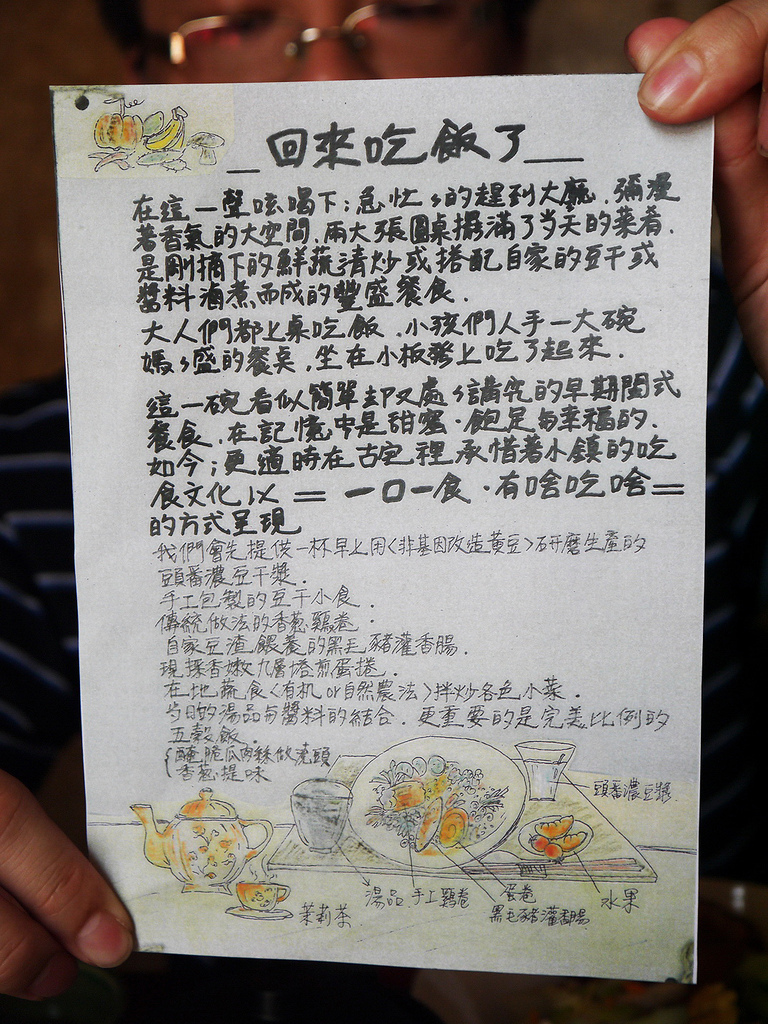 回來吃飯了
在這一聲吆喝下；急忙々的趕到大廳．彌漫
著香氣的大空間．兩大張圓桌擺滿了當天的菜肴．
是剛摘下的鮮蔬清炒或搭配自家的豆干或
醬料滷煮而成的豐盛餐食．
大人們都上桌吃飯．小孩們人手一大碗
媽々盛的餐桌．坐在小板凳上吃了起來．
這一碗看似簡單卻又處々講究的早期閩式
餐食．在記憶中是甜蜜．飽足与幸福的．
如今；更適時在古宅裡承惜著小鎮的吃
食文化以＝一口一食．有啥吃啥＝
的方式呈現
我們會先提供一杯早上用<非基因改造黃豆>研磨生產的
頭番濃豆干漿．
手工包製的豆干小食．
傳統做法的香蔥雞卷．
自家豆渣餵養的黑毛豬灌香腸．
現採香嫩九層塔煎蛋捲．
在地蔬食<有机or自然農法>拌炒各色小菜．
当日的湯品与醬料的結合．更重要的是完美比例的
五穀飯．
{醃脆瓜肉絲做澆頭
香蔥提味
頭番濃豆漿．
湯品 手工雞卷 蛋卷 水果
茉莉茶 黑毛豬灌香腸